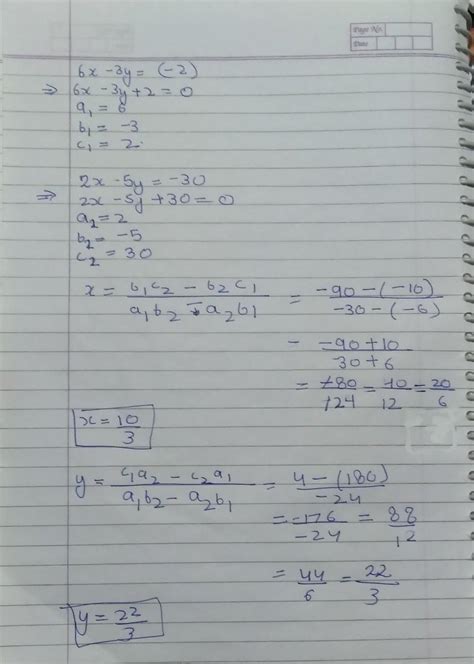 Page No.
Date
6x - 3y = (-2)
⇒ 6x - 3y + 2 = 0
a₁ = 6
b₁ = -3
c₁ = 2
2x - 5y = -30
⇒ 2x - 5y + 30 = 0
a₂ = 2
b₂ = -5
c₂ = 30
x = (b₁c₂ - b₂c₁)/(a₁b₂ - a₂b₁) = (-90 - (-10))/(-30 - (-6))
= (-90 + 10)/(30 + 6)
= +80/+24 = 40/12 = 20/6
x = 10/3
y = (c₁a₂ - c₂a₁)/(a₁b₂ - a₂b₁) = (4 - (180))/(-24)
= -176/-24 = 88/12
= 44/6 = 22/3
y = 22/3